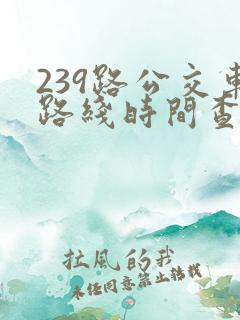 239路公交車
路綫時間查
拉風的我
未經同意禁止轉載